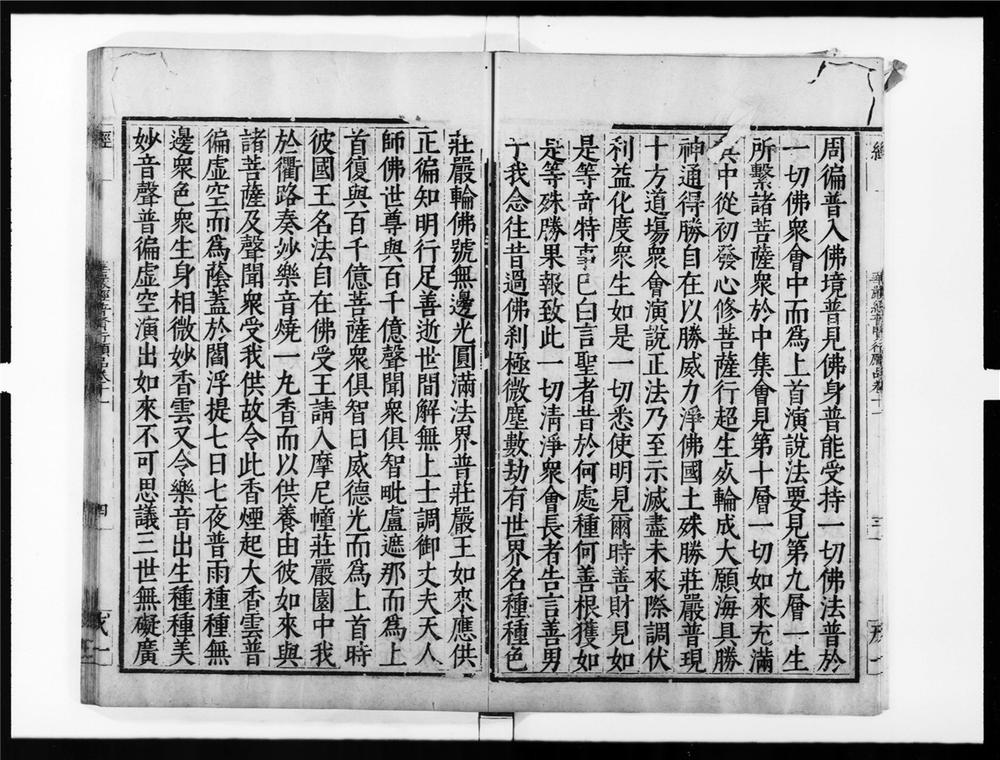 周徧普入佛境普見佛身普能受持一切佛法普於
一切佛衆會中而爲上首演說法要見第九層一生
所繫諸菩薩衆於中集會見第十層一切如來充滿
其中從初發心修菩薩行超生死輪成大願海具勝
神通得勝自在以勝威力淨佛國土殊勝莊嚴普現
十方道場衆會演說正法乃至示滅盡未來際調伏
利益化度衆生如是一切悉使明見爾時善財見如
是等奇特事已白言聖者昔於何處種何善根獲如
是等殊勝果報致此一切清淨衆會長者告言善男
子我念往昔過佛刹極微塵數劫有世界名種種色
莊嚴輪佛號無邊光圓滿法界普莊嚴王如來應供
正徧知明行足善逝世間解無上士調御丈夫天人
師佛世尊與百千億聲聞衆俱智毗盧遮那而爲上
首復與百千億菩薩衆俱智日威德光而爲上首時
彼國王名法自在佛受王請入摩尼幢莊嚴園中我
於衢路奏妙樂音燒一丸香而以供養由彼如來與
諸菩薩及聲聞衆受我供故令此香煙起大香雲普
徧虛空而爲蔭蓋於閻浮提七日七夜普雨種種無
邊衆色衆生身相微妙香雲又令樂音出生種種美
妙音聲普徧虛空演出如來不可思議三世無礙廣
經
四